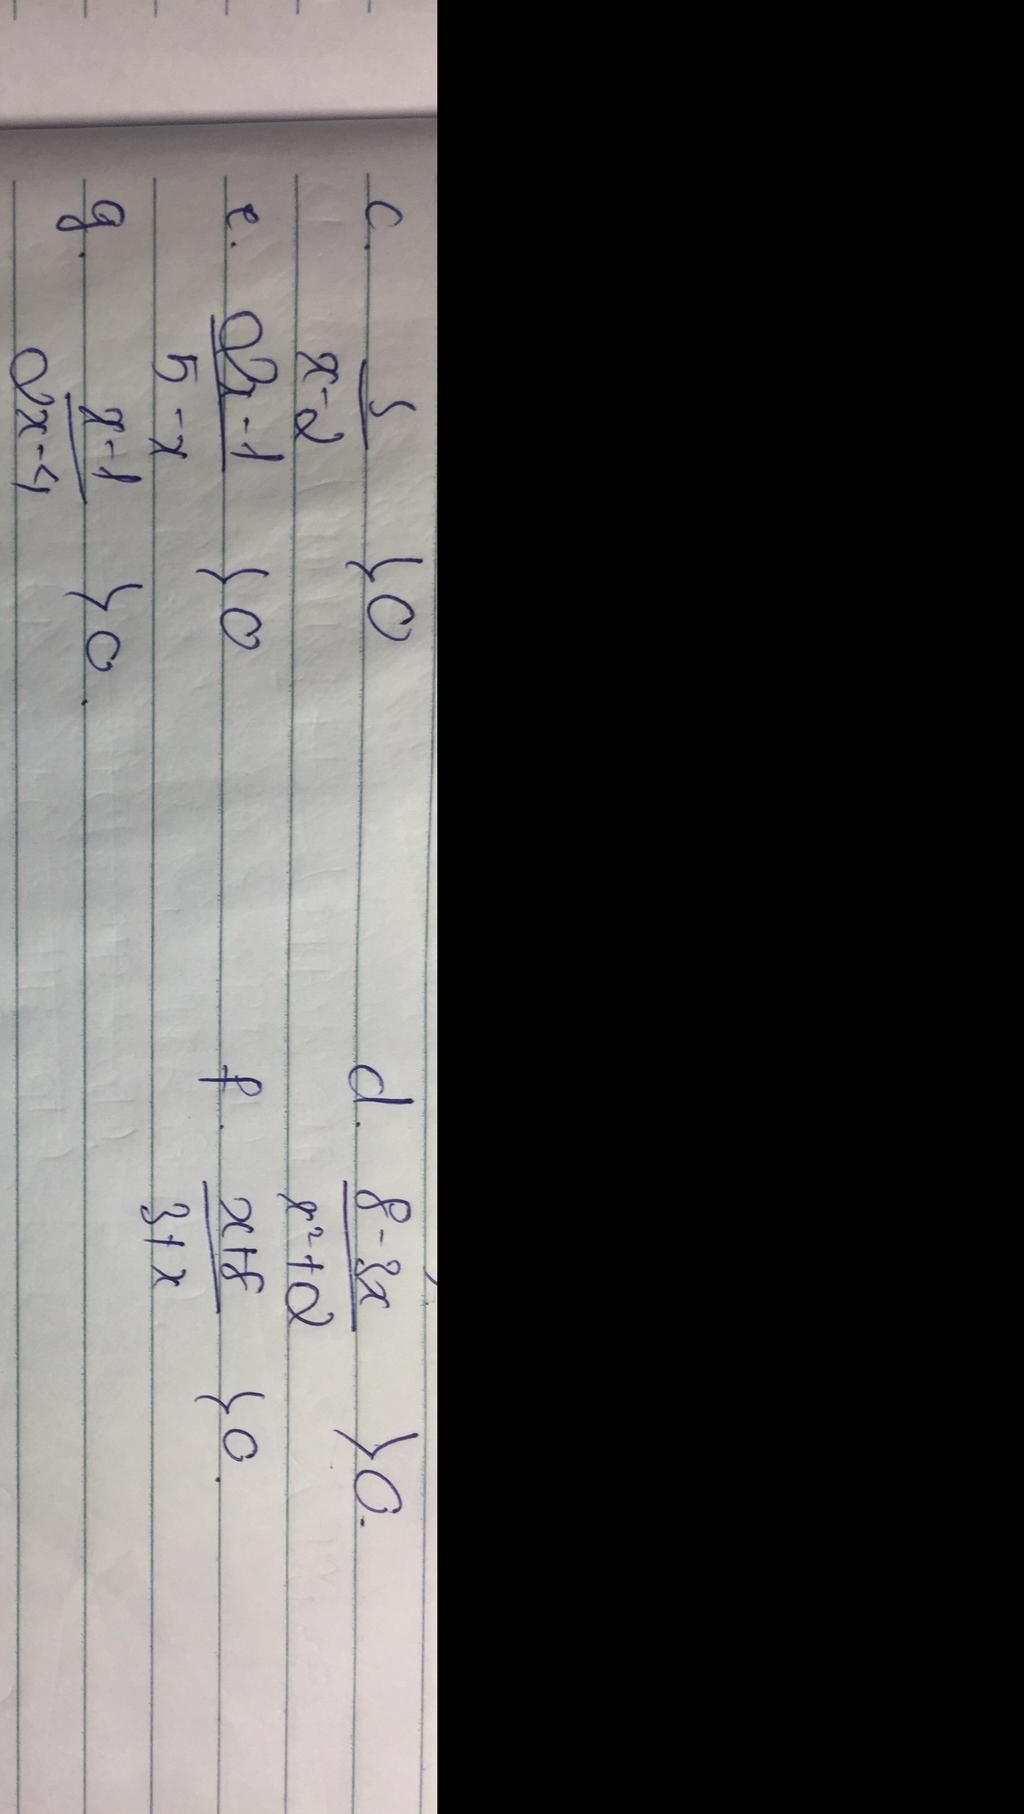 c. x-2 > 0 d. 8-3x / x²+2 > 0.
e. 2x-1 / 5-x > 0 f. x+8 / 3+x > 0.
g. x-1 / 2x-4 > 0.